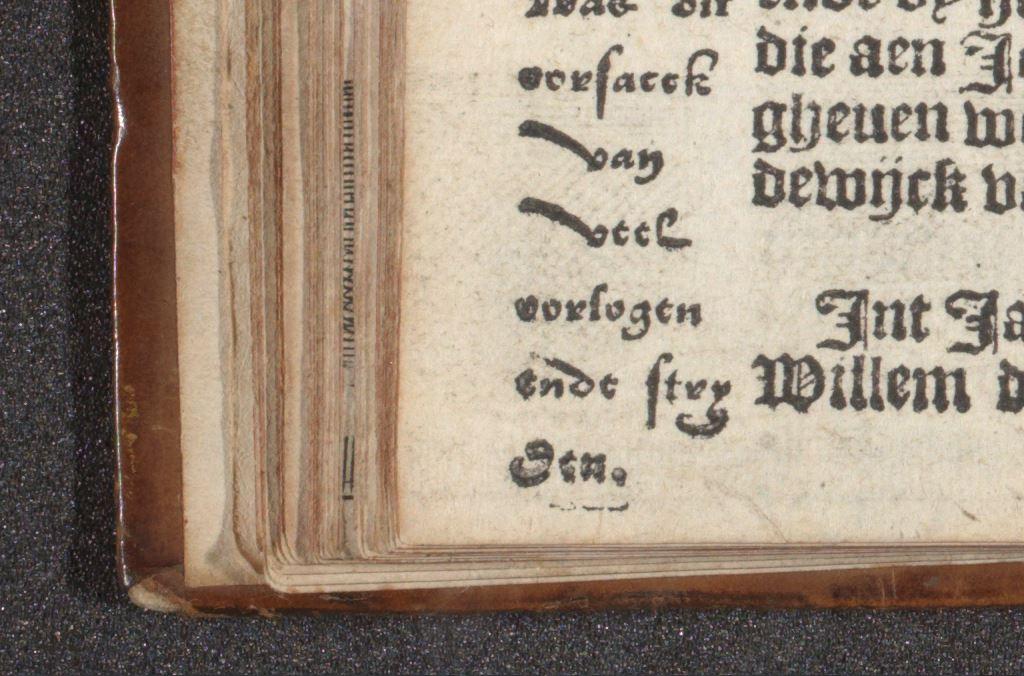 was dit
oorsaeck
van
veel
oorlogen
ende stry
den.
ende by
die aen
gheuen
dewijck
Int
Willem